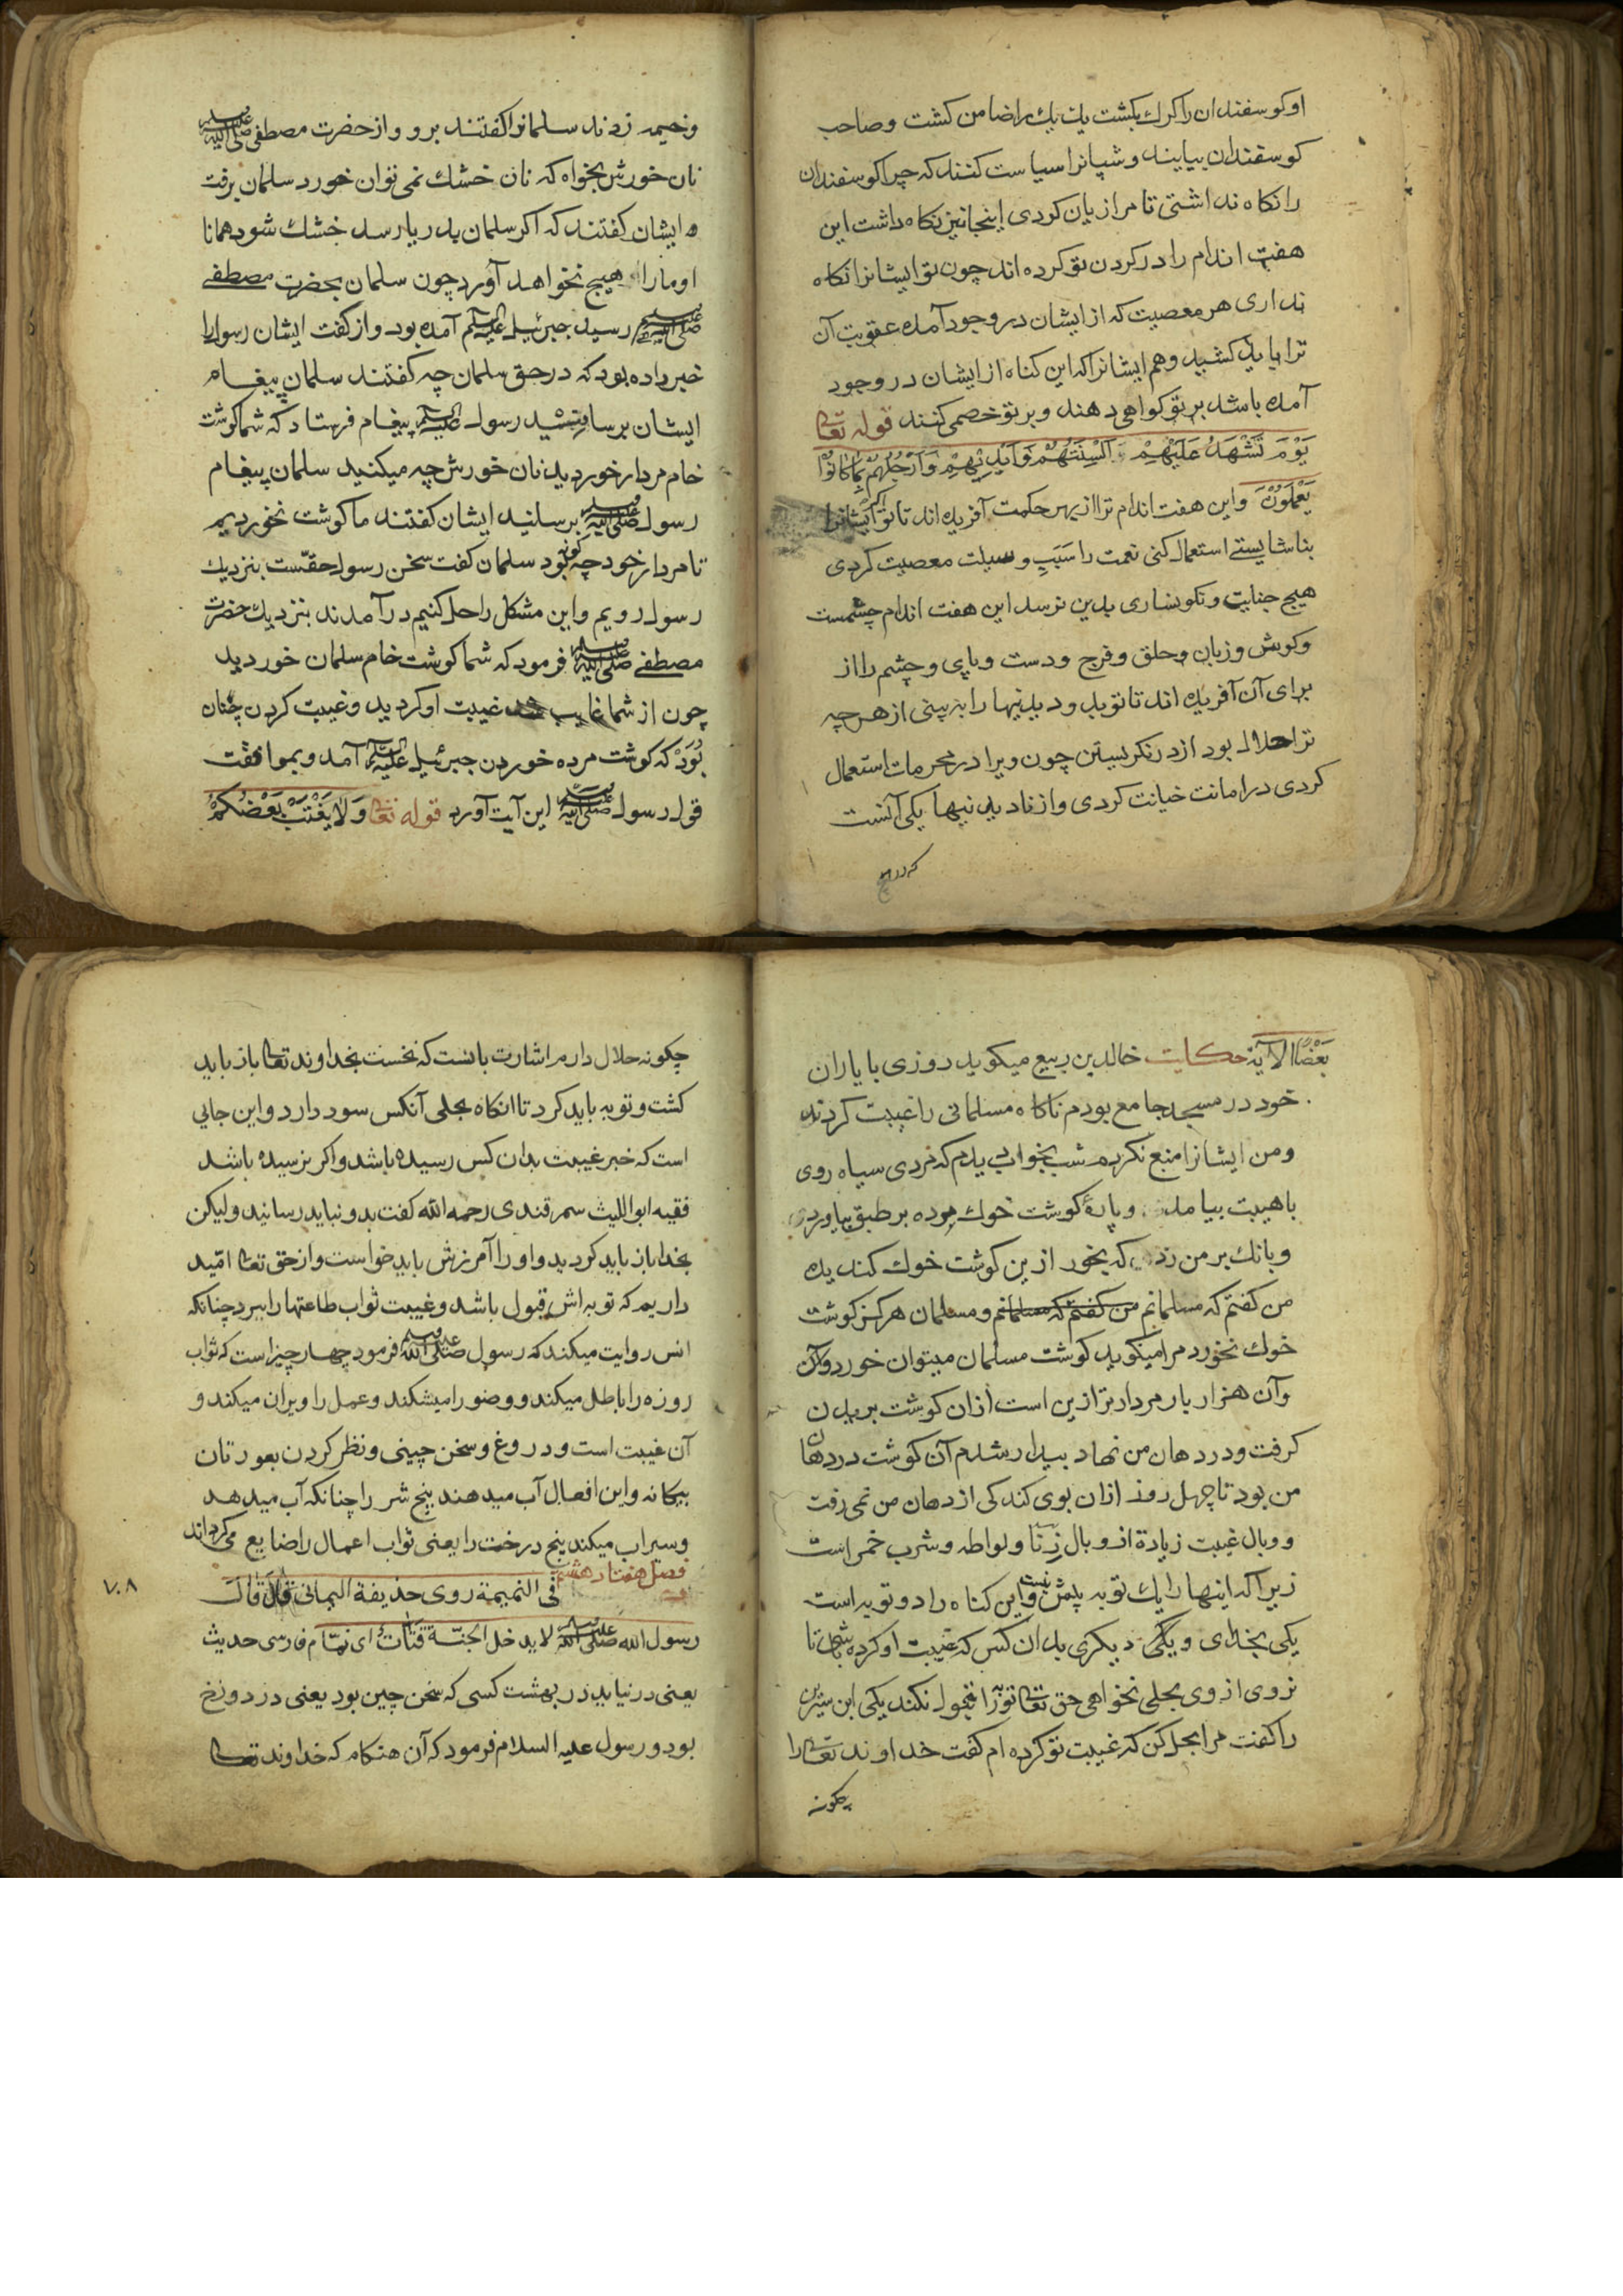 او کوسفندان را کرك بکشت یك یك را ضامن کشت و صاحب
کوسفندان بیایند و شپانرا سیاست کنند که چرا کوسفندان
را نکاه نداشتی تا مرا زیان کردی اینجا نیز نکاه داشت این
هفت اندام را در کردن تو کرده اند چون تو ایشانرا نکاه
نداری هر معصیت که از ایشان در وجود آمده عقوبت آن
ترا باید کشید و هم ایشانرا که این کناه از ایشان در وجود
آمده باشد بر تو کواهی دهند و بر تو خصمی کنند قوله تعالی
یَوْمَ تَشْهَدُ عَلَیْهِمْ اَلْسِنَتُهُمْ وَاَیْدِیْهِمْ وَاَرْجُلُهُمْ بِمَا کَانُوْا
یَعْمَلُوْنَ و این هفت اندام ترا از بهر حکمت آفریده اند تا تو اکر ایشانرا
بناشایستی استعمال کنی نعمت را سَبَبِ وسیلت معصیت کردی
هیچ جنایت و نکونساری بدین نرسد این هفت اندام چشمست
و کوش و زبان و حلق و فرج و دست و پای و چشم را از
برای آن آفریده اند تا تو بد و دیدنیها را به بینی از هر چه
ترا حلال بود از در نکریستن چون ویرا در محرمات استعمال
کردی در امانت خیانت کردی و از نادیدنیها یکی آنست
که در هیچ
و خیمه زدند سلمانرا کفتند برو و از حضرت مصطفی صلی الله علیه وسلم
نان خورش بخواه که نان خشك نمی توان خورد سلمان برفت
و ایشان کفتند که اکر سلمان بدریا رسد خشك شود همانا
او ما را هیچ نخواهد آورد چون سلمان بحضرت مصطفی
صلی الله علیه وسلم رسید جبرئیل علیه السلم آمده بود و از کفت ایشان رسول را
خبر داده بود که در حق سلمان چه کفتند سلمان پیغام
ایشان برسانید رسول علیه السلم پیغام فرستاد که شما کوشت
خام مردار خوردید نان خورش چه میکنید سلمان پیغام
رسول صلی الله علیه وسلم برسانید ایشان کفتند ما کوشت نخوردیم
تا مردار خود چه کونه بود سلمان کفت سخن رسول حقّست بنزدیك
رسول رویم و این مشکل را حل کنیم درآمدند بنزدیك حضرت
مصطفی صلی الله علیه وسلم فرمود که شما کوشت خام سلمان خوردید
چون از شما غایب شد غیبت او کردید و غیبت کردن چنان
بُوَدْ که کوشت مرده خوردن جبرئیل علیه السلم آمد و بموافقت
قول رسول صلی الله علیه وسلم این آیت آورد قوله تعالی وَلَا یَغْتَبْ بَعْضُکُمْ
بَعْضًا الآیة حکایت خالد بن ربیع میکوید روزی با یاران
خود در مسجد جامع بودم ناکاه مسلمانی را غیبت کردند
و من ایشانرا منع نکردم شب بخواب دیدم که مردی سیاه روی
با هیبت بیامد و پارهٔ کوشت خوك مرده بر طبق بیاوردی
و بانك بر من زد که بخور ازین کوشت خوك کندیده
من کفتم که مسلمانم من کفتم که مسلمانم و مسلمان هرکز کوشت
خوك نخورد مرا میکوید کوشت مسلمان میتوان خورد وآن
وآن هزار بار مردارتر ازین است ازان کوشت بریدن
کرفت و در دهان من نهاد بیدار شدم آن کوشت در دهان
من بود تا چهل روز ازان بوی کندکی از دهان من نمی رفت
و وبال غیبت زیادة از وبال زِنَا و لواطه و شرب خمر است
زیرا که اینها را یك توبه بیش نیست و این کناه را دو توبه است
یکی بخدای و یکی دیکری بدان کس که غیبت او کرده باشی تا
نروی از وی بحلی نخواهی حق تعالی توبه را قبول نکند یکی ابن سیرین
را کفت مرا بحل کن که غیبت تو کرده ام کفت خداوند تعالی را
چکونه
چکونه حلال دارم اشارت بانست که نخست بخداوند تعالی باز باید
کشت و توبه باید کرد تا انکاه بحلی آنکس سود دارد و این جایی
است که خبر غیبت بدان کس رسیده باشد و اکر نرسیده باشد
فقیه ابو اللیث سمرقندی رحمه الله کفت بدو نباید رسانید ولیکن
بخدا باز باید کردید و او را آمرزش باید خواست و از حق تعالی امّید
داریم که توبه اش قبول باشد و غیبت ثواب طاعتها را ببرد چنانکه
انس روایت میکند که رسول صلی الله علیه وسلم فرمود چهار چیز است که ثواب
روزه را باطل میکند و وضو را میشکند و عمل را ویران میکند و
آن غیبت است و دروغ و سخن چینی و نظر کردن بعورتان
بیکانه و این افعال آب میدهند بیخ شر را چنانکه آب میدهد
و سیراب میکند بیخ درخت را یعنی ثواب اعمال را ضایع می کرداند
فصل هفتاد هشتم فی النمیمة روی حذیفة الیمانی قال قال
٧٠٨
رسول الله صلی الله علیه وسلم لا یدخل الجنّة قتّات ای نمّام فارسی حدیث
یعنی در نیاید در بهشت کسی که سخن چین بود یعنی در دوزخ
بود و رسول علیه السلام فرمود که آن هنکام که خداوند تعالی